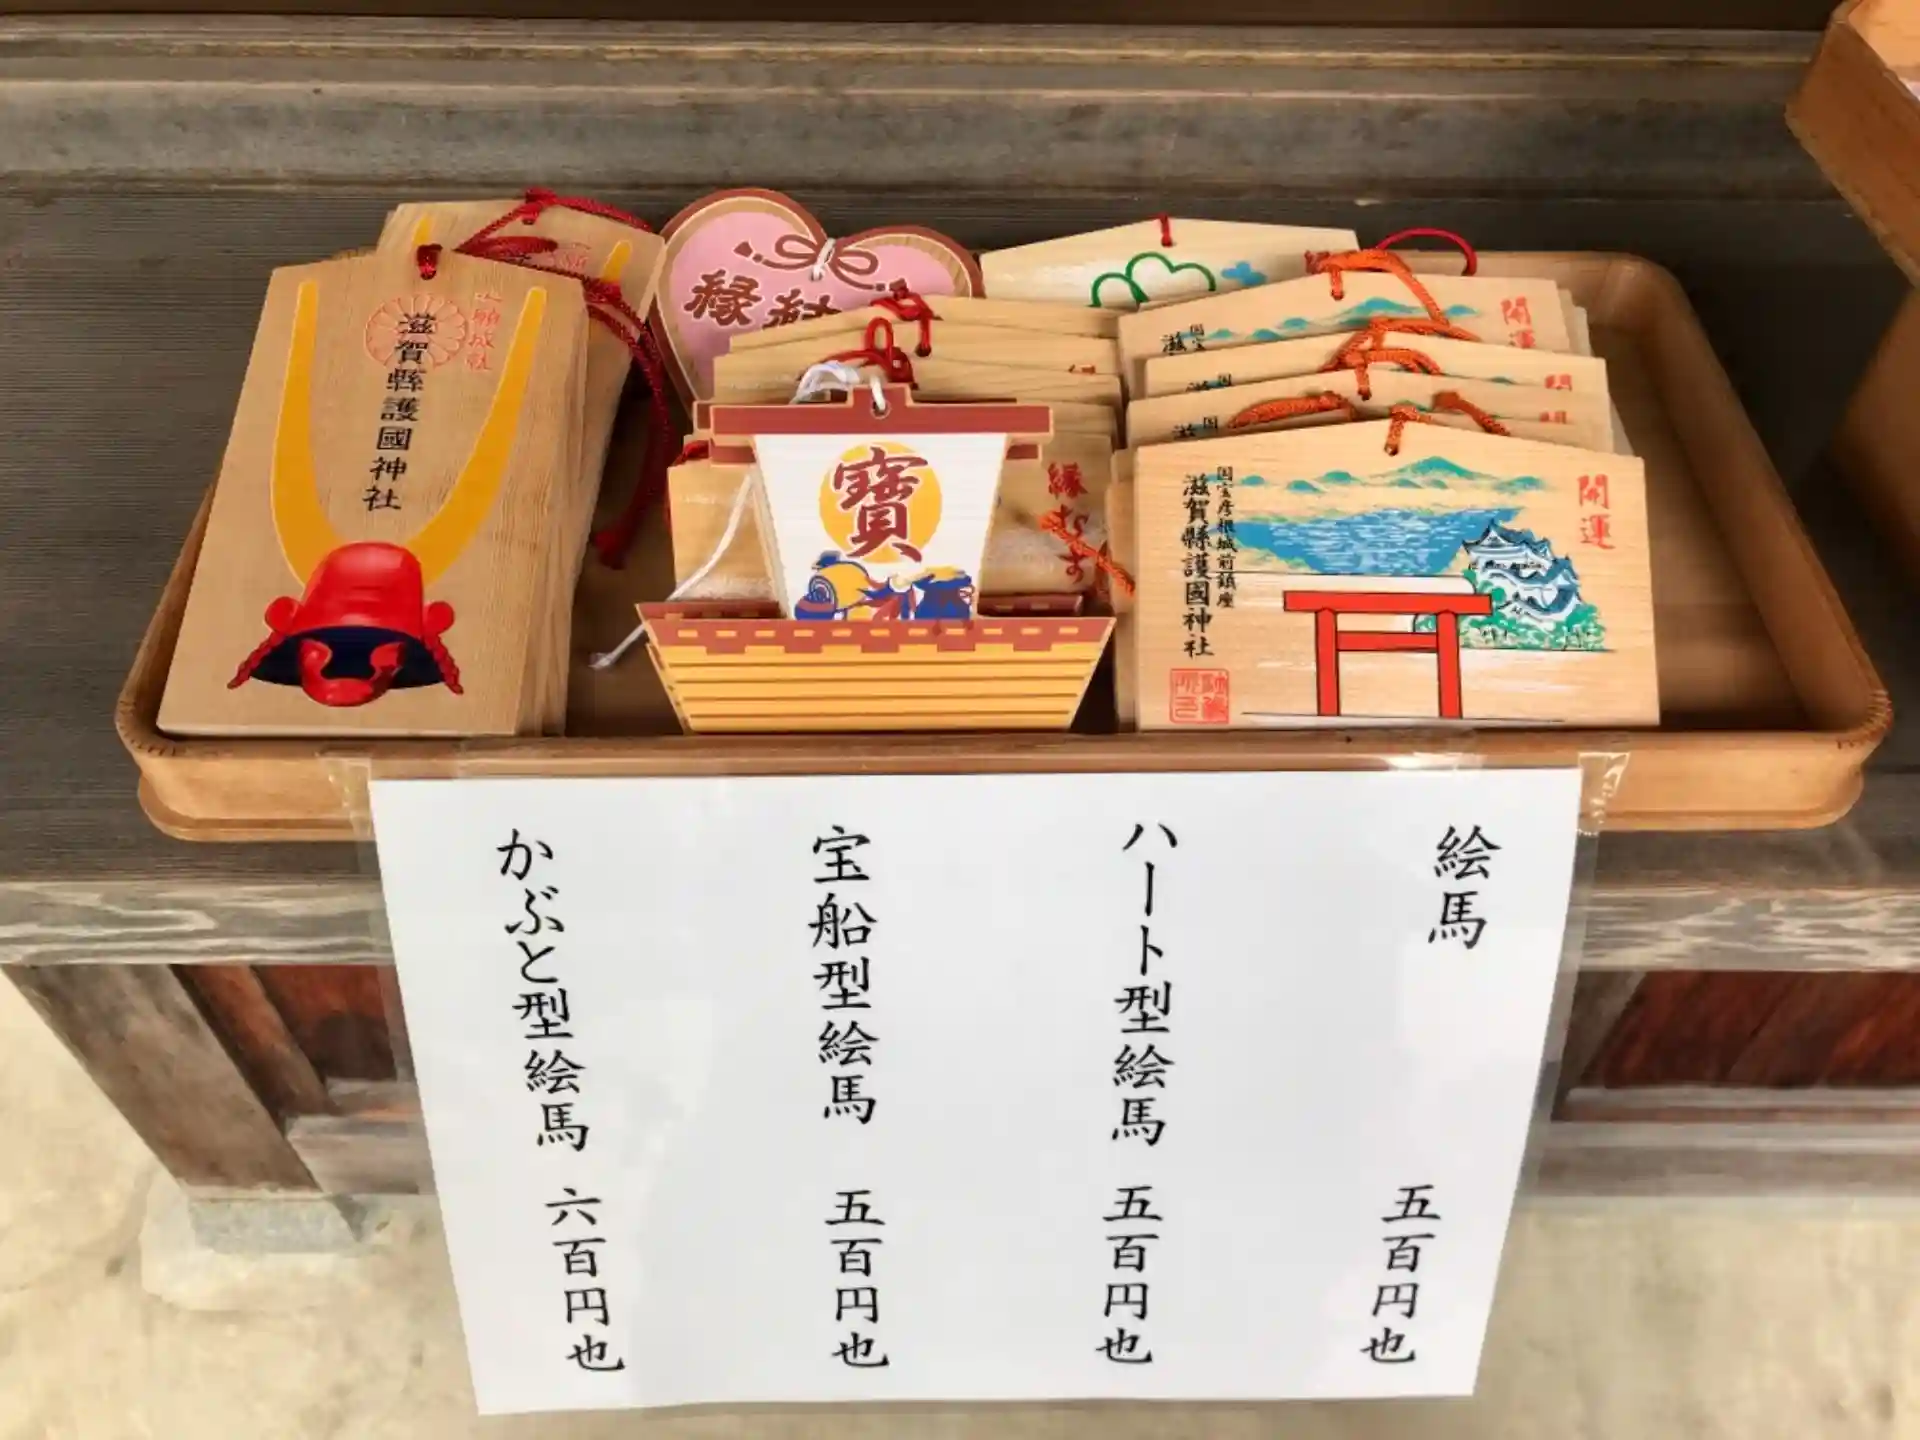 滋賀縣護國神社
縁結
寶
縁むすび
開運
国宝彦根城前鎮座
滋賀縣護國神社
開運
国宝
滋
開
国
滋
開
国
滋
絵馬 五百円也
ハート型絵馬 五百円也
宝船型絵馬 五百円也
かぶと型絵馬 六百円也